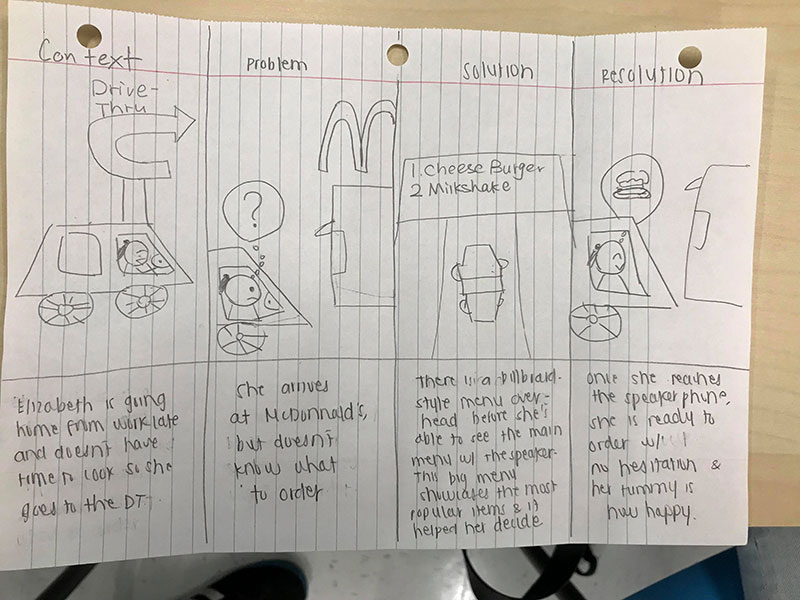 Context
Drive-
Thru
Elizabeth is going
home from work late
and doesn't have
time to cook so she
goes to the DT.
Problem
?
She arrives
at McDonnald's,
but doesn't
know what
to order
Solution
1. Cheese Burger
2 Milkshake
There is a billboard-
style menu over-
head before she's
able to see the main
menu w/ the speaker.
This big menu
showcases the most
popular items & it
helped her decide
Resolution
Once she reaches
the speaker phone,
she is ready to
order w/
no hesitation &
her tummy is
now happy.